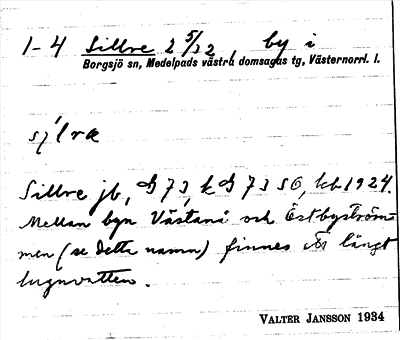 1-4 Sillre 2 5/32, by i
Borgsjö sn, Medelpads västra domsagas tg, Västernorrl. l.
sı̷́lræ
Sillre jb, G 73, k G 73 SO, kb 1924.
Mellan byn Västanå och Östbyström-
men (se detta namn) finnes ett långt
lugnvatten.
VALTER JANSSON 1934